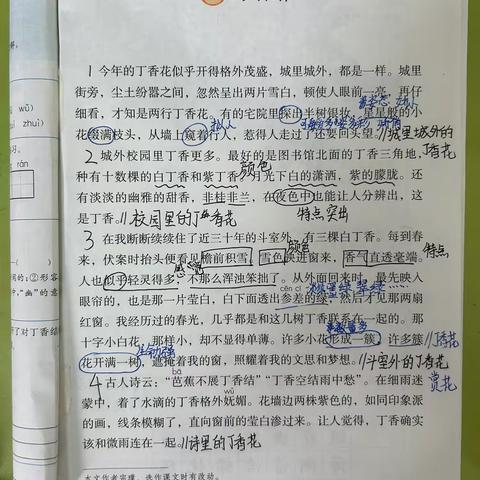 1 今年的丁香花似乎开得格外茂盛，城里城外，都是一样。城里
街旁，尘土纷嚣之间，忽然呈出两片雪白，顿使人眼前一亮，再仔
细看，才知是两行丁香花。有的宅院里探出半树银妆，星星般的小
花缀满枝头，从墙上窥着行人，惹得人走过了还要回头望。//城里城外的
拟人
丁香花
2 城外校园里丁香更多。最好的是图书馆北面的丁香三角地，
颜色
种有十数棵的白丁香和紫丁香。月光下白的潇洒，紫的朦胧。还
有淡淡的幽雅的甜香，非桂非兰，在夜色中也能让人分辨出，这
是丁香。//校园里的丁香花
特点突出
3 在我断断续续住了近三十年的斗室外，有三棵白丁香。每到春
颜色
来，伏案时抬头便看见檐前积雪。雪色映进窗来，香气直透毫端。
特点
人也似乎轻灵得多，不那么浑浊笨拙了。从外面回来时，最先映入
眼帘的，也是那一片莹白，白下面透出参差的绿，然后才见那两扇
红窗。我经历过的春光，几乎都是和这几树丁香联系在一起的。那
十字小白花，那样小，却不显得单薄。许多小花形成一簇，许多簇
//丁香花
花开满一树，遮掩着我的窗，照耀着我的文思和梦想。
//斗室外的丁香花
赏花
bā
4 古人诗云：“芭蕉不展丁香结”“丁香空结雨中愁”。在细雨迷
wǔ
蒙中，着了水滴的丁香格外妩媚。花墙边两株紫色的，如同印象派
的画，线条模糊了，直向窗前的莹白渗过来。让人觉得，丁香确实
该和微雨连在一起。//诗里的丁香花
本文作者宗璞，选作课文时有改动。
wū
zhuì
rán
②形容
“幽”的意
对丁香结